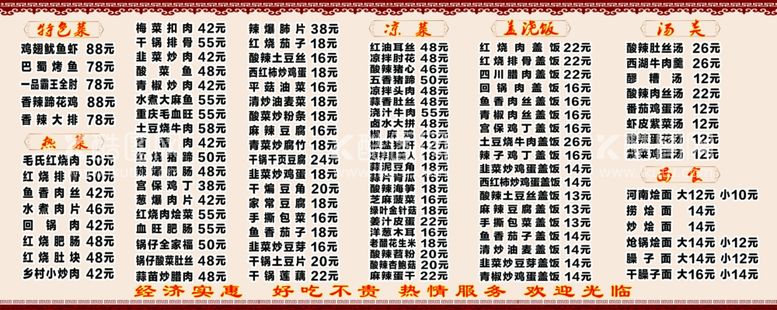 特色菜
鸡翅鱿鱼虾 88元
巴蜀烤鱼 78元
一品霸王全肘 78元
香辣蹄花鸡 88元
香辣大排 78元
热菜
毛氏红烧肉 50元
红烧排骨 50元
鱼香肉丝 42元
水煮肉片 46元
回锅肉 42元
红烧肥肠 48元
红烧肚块 48元
乡村小炒肉 42元
梅菜扣肉 42元
干锅排骨 55元
韭菜炒肉 42元
酸菜鱼 48元
青椒炒肉 42元
水煮大麻鱼 55元
重庆毛血旺 55元
土豆烧牛肉 58元
麻辣肉片 48元
红烧猪蹄 50元
辣爆肥肠 48元
宫保鸡丁 38元
葱爆肉片 42元
红烧肉烩菜 55元
血旺肥肠 55元
锅仔全家福 50元
锅仔酸菜肚丝 48元
蒜苗炒腊肉 48元
辣爆肺片 38元
红烧茄子 18元
酸辣土豆丝 16元
西红柿炒鸡蛋 18元
平菇油菜 16元
清炒油麦菜 18元
酸菜炒粉条 18元
麻辣豆腐 16元
青菜炒腐竹 18元
干锅千页豆腐 24元
韭菜炒鸡蛋 18元
干煸豆角 20元
家常豆腐 18元
手撕包菜 16元
鱼香茄子 18元
韭菜炒豆芽 16元
干锅莲藕 22元
凉菜
红油耳丝 48元
凉拌肘花 48元
酸辣猪心 46元
五香猪蹄 50元
凉拌头肉 48元
蒜香肚丝 48元
浇汁牛肉 55元
卤水大拼 48元
椒麻鸡 48元
蒜泥豆角 18元
蒜片青瓜 16元
酸辣海笋 18元
芝麻菠菜 16元
绿叶金针菇 18元
姜汁皮蛋 22元
洋葱木耳 16元
老醋花生米 18元
酸辣苕粉 20元
酸辣杏鲍菇 20元
麻辣蛋干 22元
盖浇饭
红烧肉盖饭 22元
红烧排骨盖饭 22元
四川腊肉盖饭 22元
回锅肉盖饭 16元
鱼香肉丝盖饭 16元
青椒肉丝盖饭 16元
宫保鸡丁盖饭 16元
土豆烧牛肉盖饭 16元
辣子鸡丁盖饭 16元
韭菜炒鸡蛋盖饭 14元
西红柿炒鸡蛋盖饭 14元
酸辣土豆丝盖饭 13元
麻辣豆腐盖饭 13元
手撕包菜盖饭 13元
鱼香茄子盖饭 14元
清炒油麦盖饭 14元
韭菜炒豆芽盖饭 14元
青椒炒鸡蛋盖饭 14元
汤类
酸辣肚丝汤 26元
西湖牛肉羹 26元
醪糟汤 12元
酸辣肉丝汤 22元
番茄鸡蛋汤 12元
虾皮紫菜汤 12元
酸辣蛋花汤 12元
菠菜鸡蛋汤 12元
面食
河南烩面 大12元 小10元
捞烩面 14元
炒烩面 14元
炝锅烩面 大14元 小12元
臊子面 大14元 小12元
干臊子面 大16元 小14元
经济实惠 好吃不贵 热情服务 欢迎光临